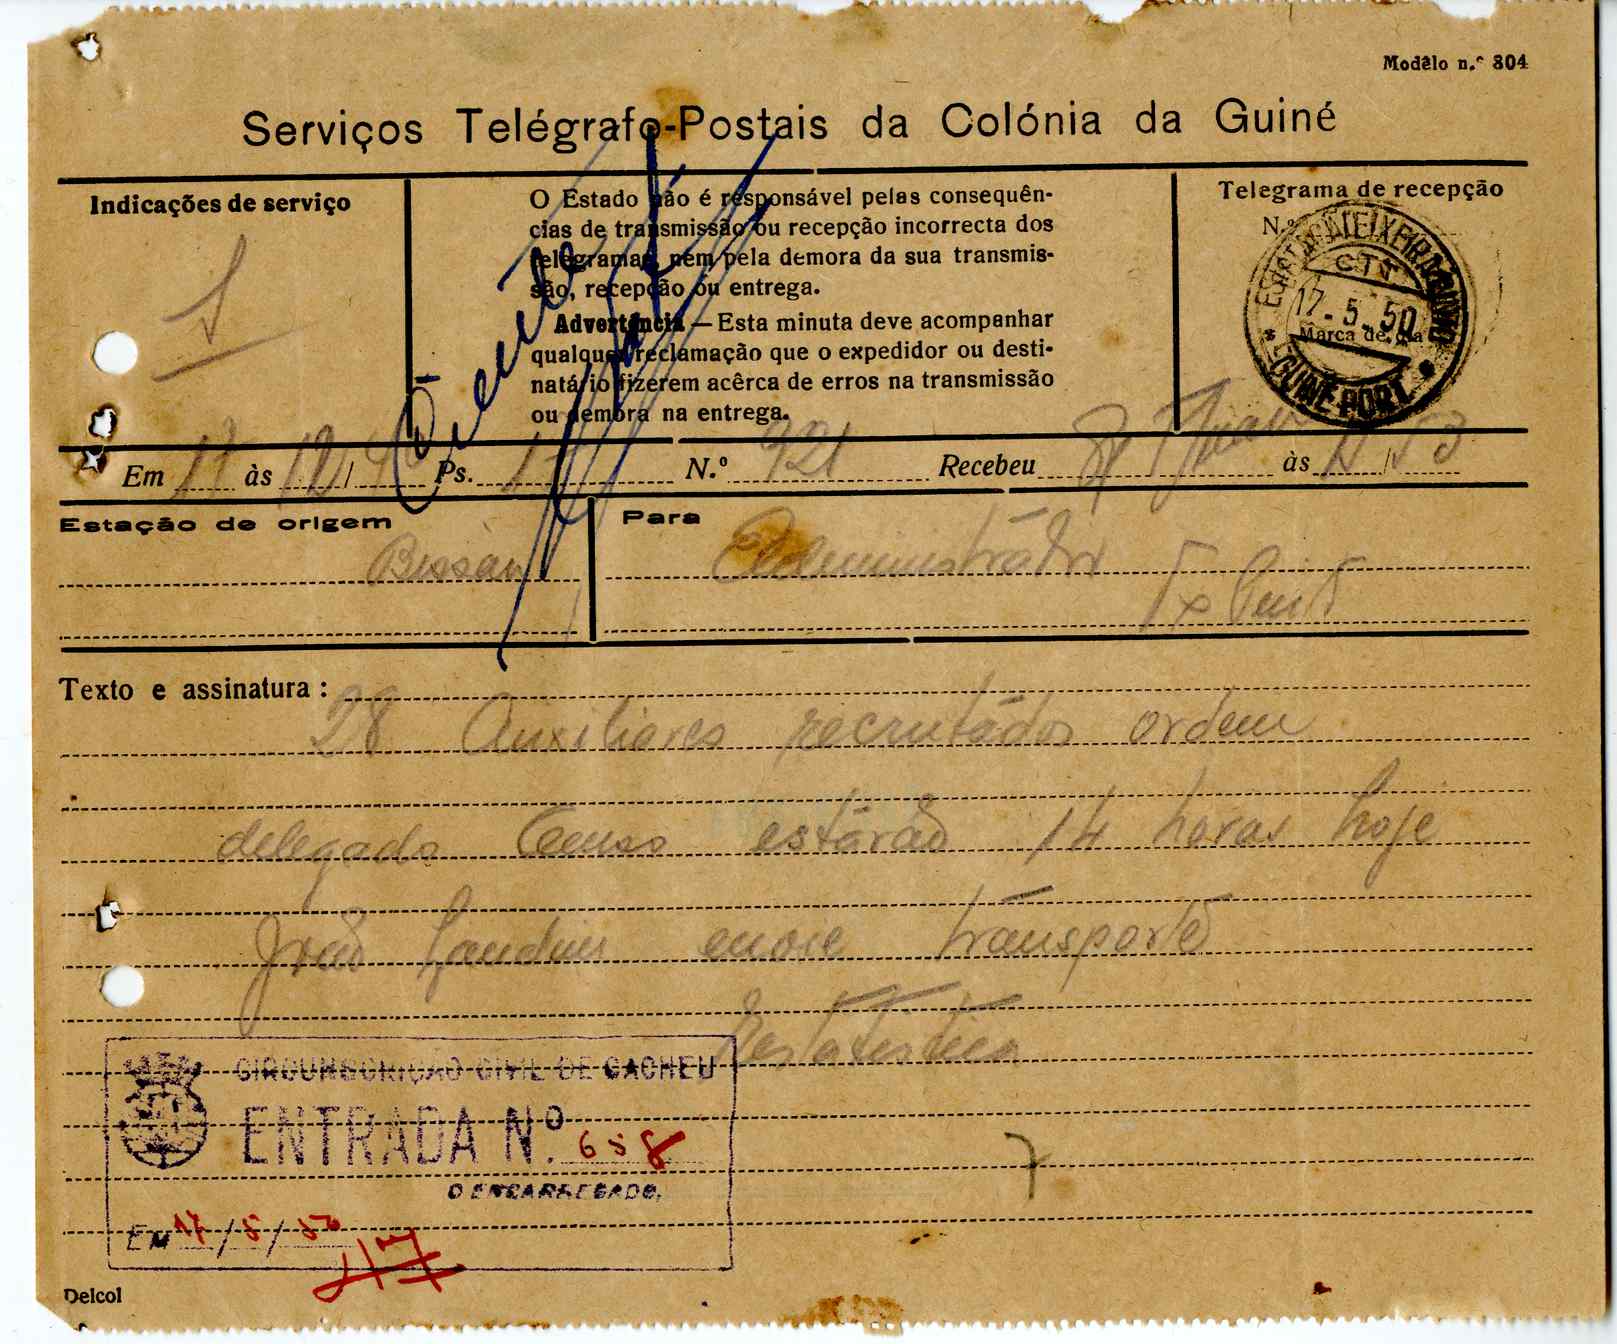 Modêlo n.º 304
Serviços Telégrafo-Postais da Colónia da Guiné
Indicações de serviço
O Estado não é responsável pelas consequên-
cias de transmissão ou recepção incorrecta dos
telegramas, nem pela demora da sua transmis-
são, recepção ou entrega.
Advertência — Esta minuta deve acompanhar
qualquer reclamação que o expedidor ou desti-
natário fizerem acêrca de erros na transmissão
ou demora na entrega.
Telegrama de recepção
N.º
CTT
17-5-50
Marca de dia
GUINÉ PORT.
Ciente
Em 17 às 12/ Ps. 17 N.º 921 Recebeu às /
Estação de origem
Bissau
Para
Administrador
Texto e assinatura:
28 Auxiliares recrutados ordem
delegado Censo estarão 14 horas hoje
João Landim envie transporte
Estatistica
CIRCUNSCRIÇÃO CIVIL DE CACHEU
ENTRADA N.º 658
O ENCARREGADO,
EM 17/5/50
7
Delcol